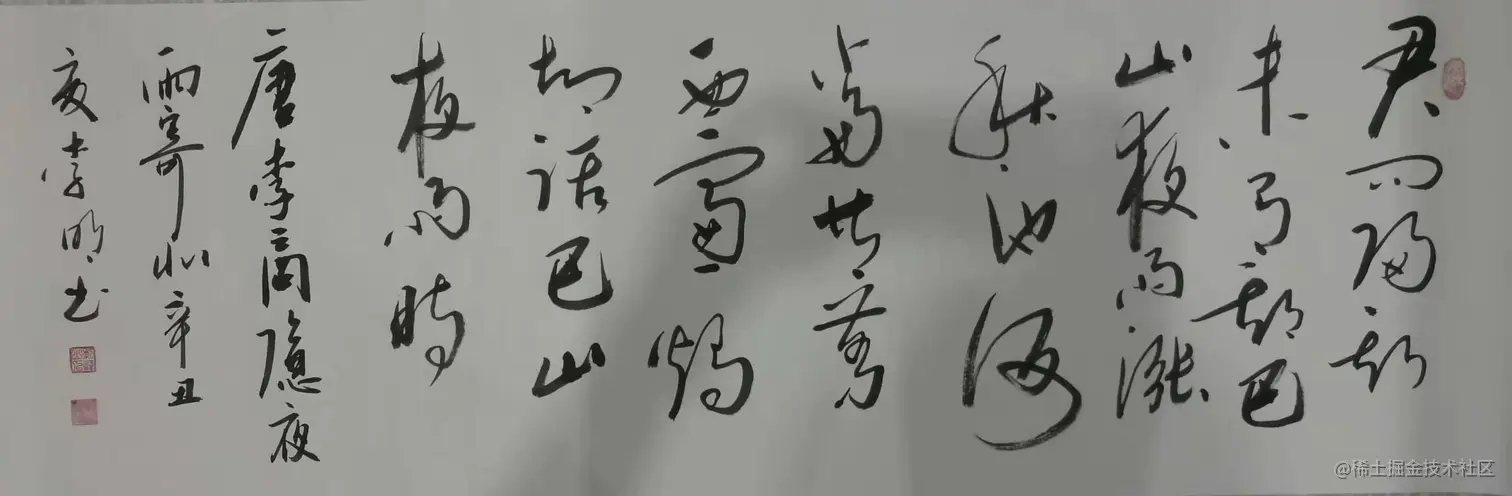 君问归期
未有期巴
山夜雨涨
秋池何
當共剪
西窗燭
却话巴山
夜雨時
唐李商隐夜
雨寄北辛丑
夏李明书
@稀土掘金技术社区